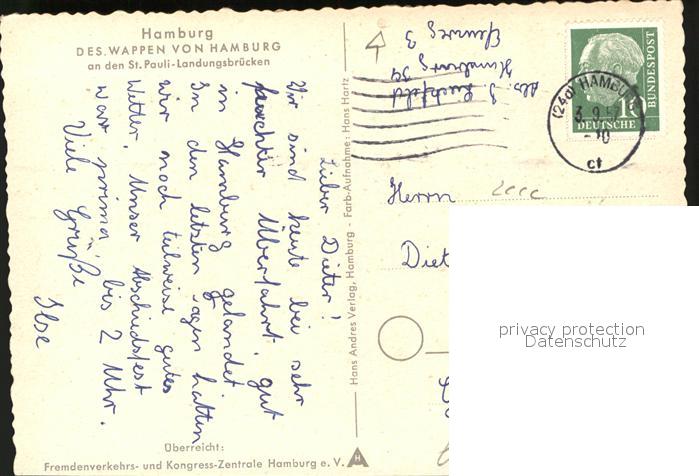 Hamburg
DES. WAPPEN VON HAMBURG
an den St. Pauli-Landungsbrücken
Lieber Dieter!
Wir sind heute bei sehr
feuchter Überfahrt gut
in Hamburg gelandet.
In den letzten Tagen hatten
wir noch teilweise gutes
Wetter. Unser Abschiedsfest
war „prima“, bis 2 Uhr.
Viele Grüße
Ilse
Überreicht:
Fremdenverkehrs- und Kongress-Zentrale Hamburg e. V.
Hans Andres Verlag, Hamburg - Farb-Aufnahme: Hans Hartz
Abs. J.
Hamburg 34
3
DEUTSCHE
BUNDESPOST
10
(24a) HAMBURG
3.9.5
-10
cf
Herrn
Diet
privacy protection
Datenschutz